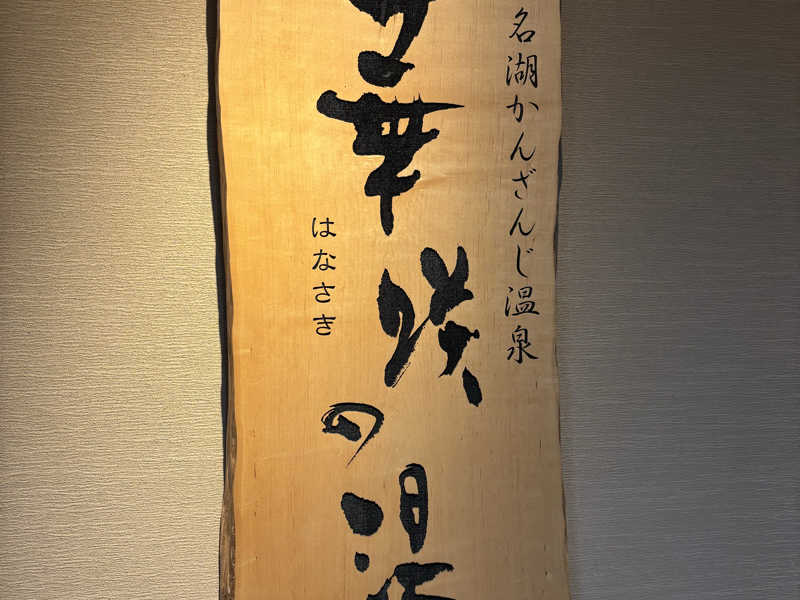 名湖かんざんじ温泉
華咲の湯
はなさき